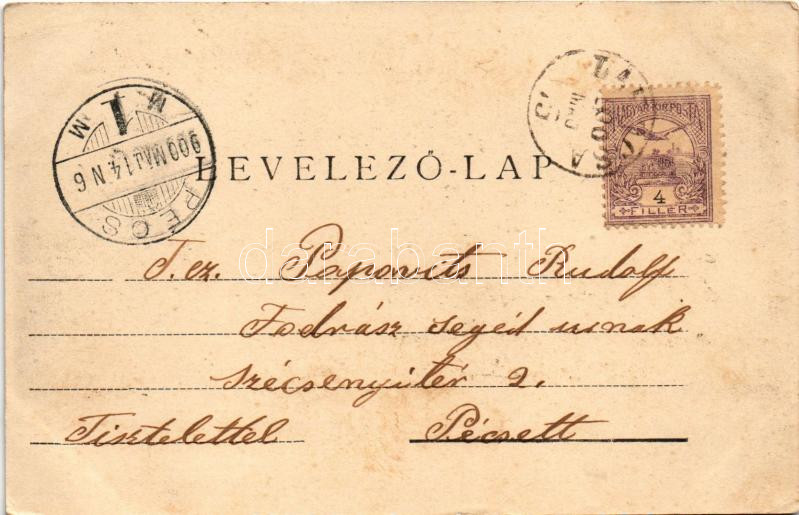 LEVELEZŐ-LAP
PÉCS
900 MAJ. 14 N 6
M 1 M
MAGYAR KIR. POSTA
4
FILLÉR
T. cz. Papovits Rudolf
Fodrász segéd urnak
Szécsenyi tér 2.
Tisztelettel Pécsett
darabanth